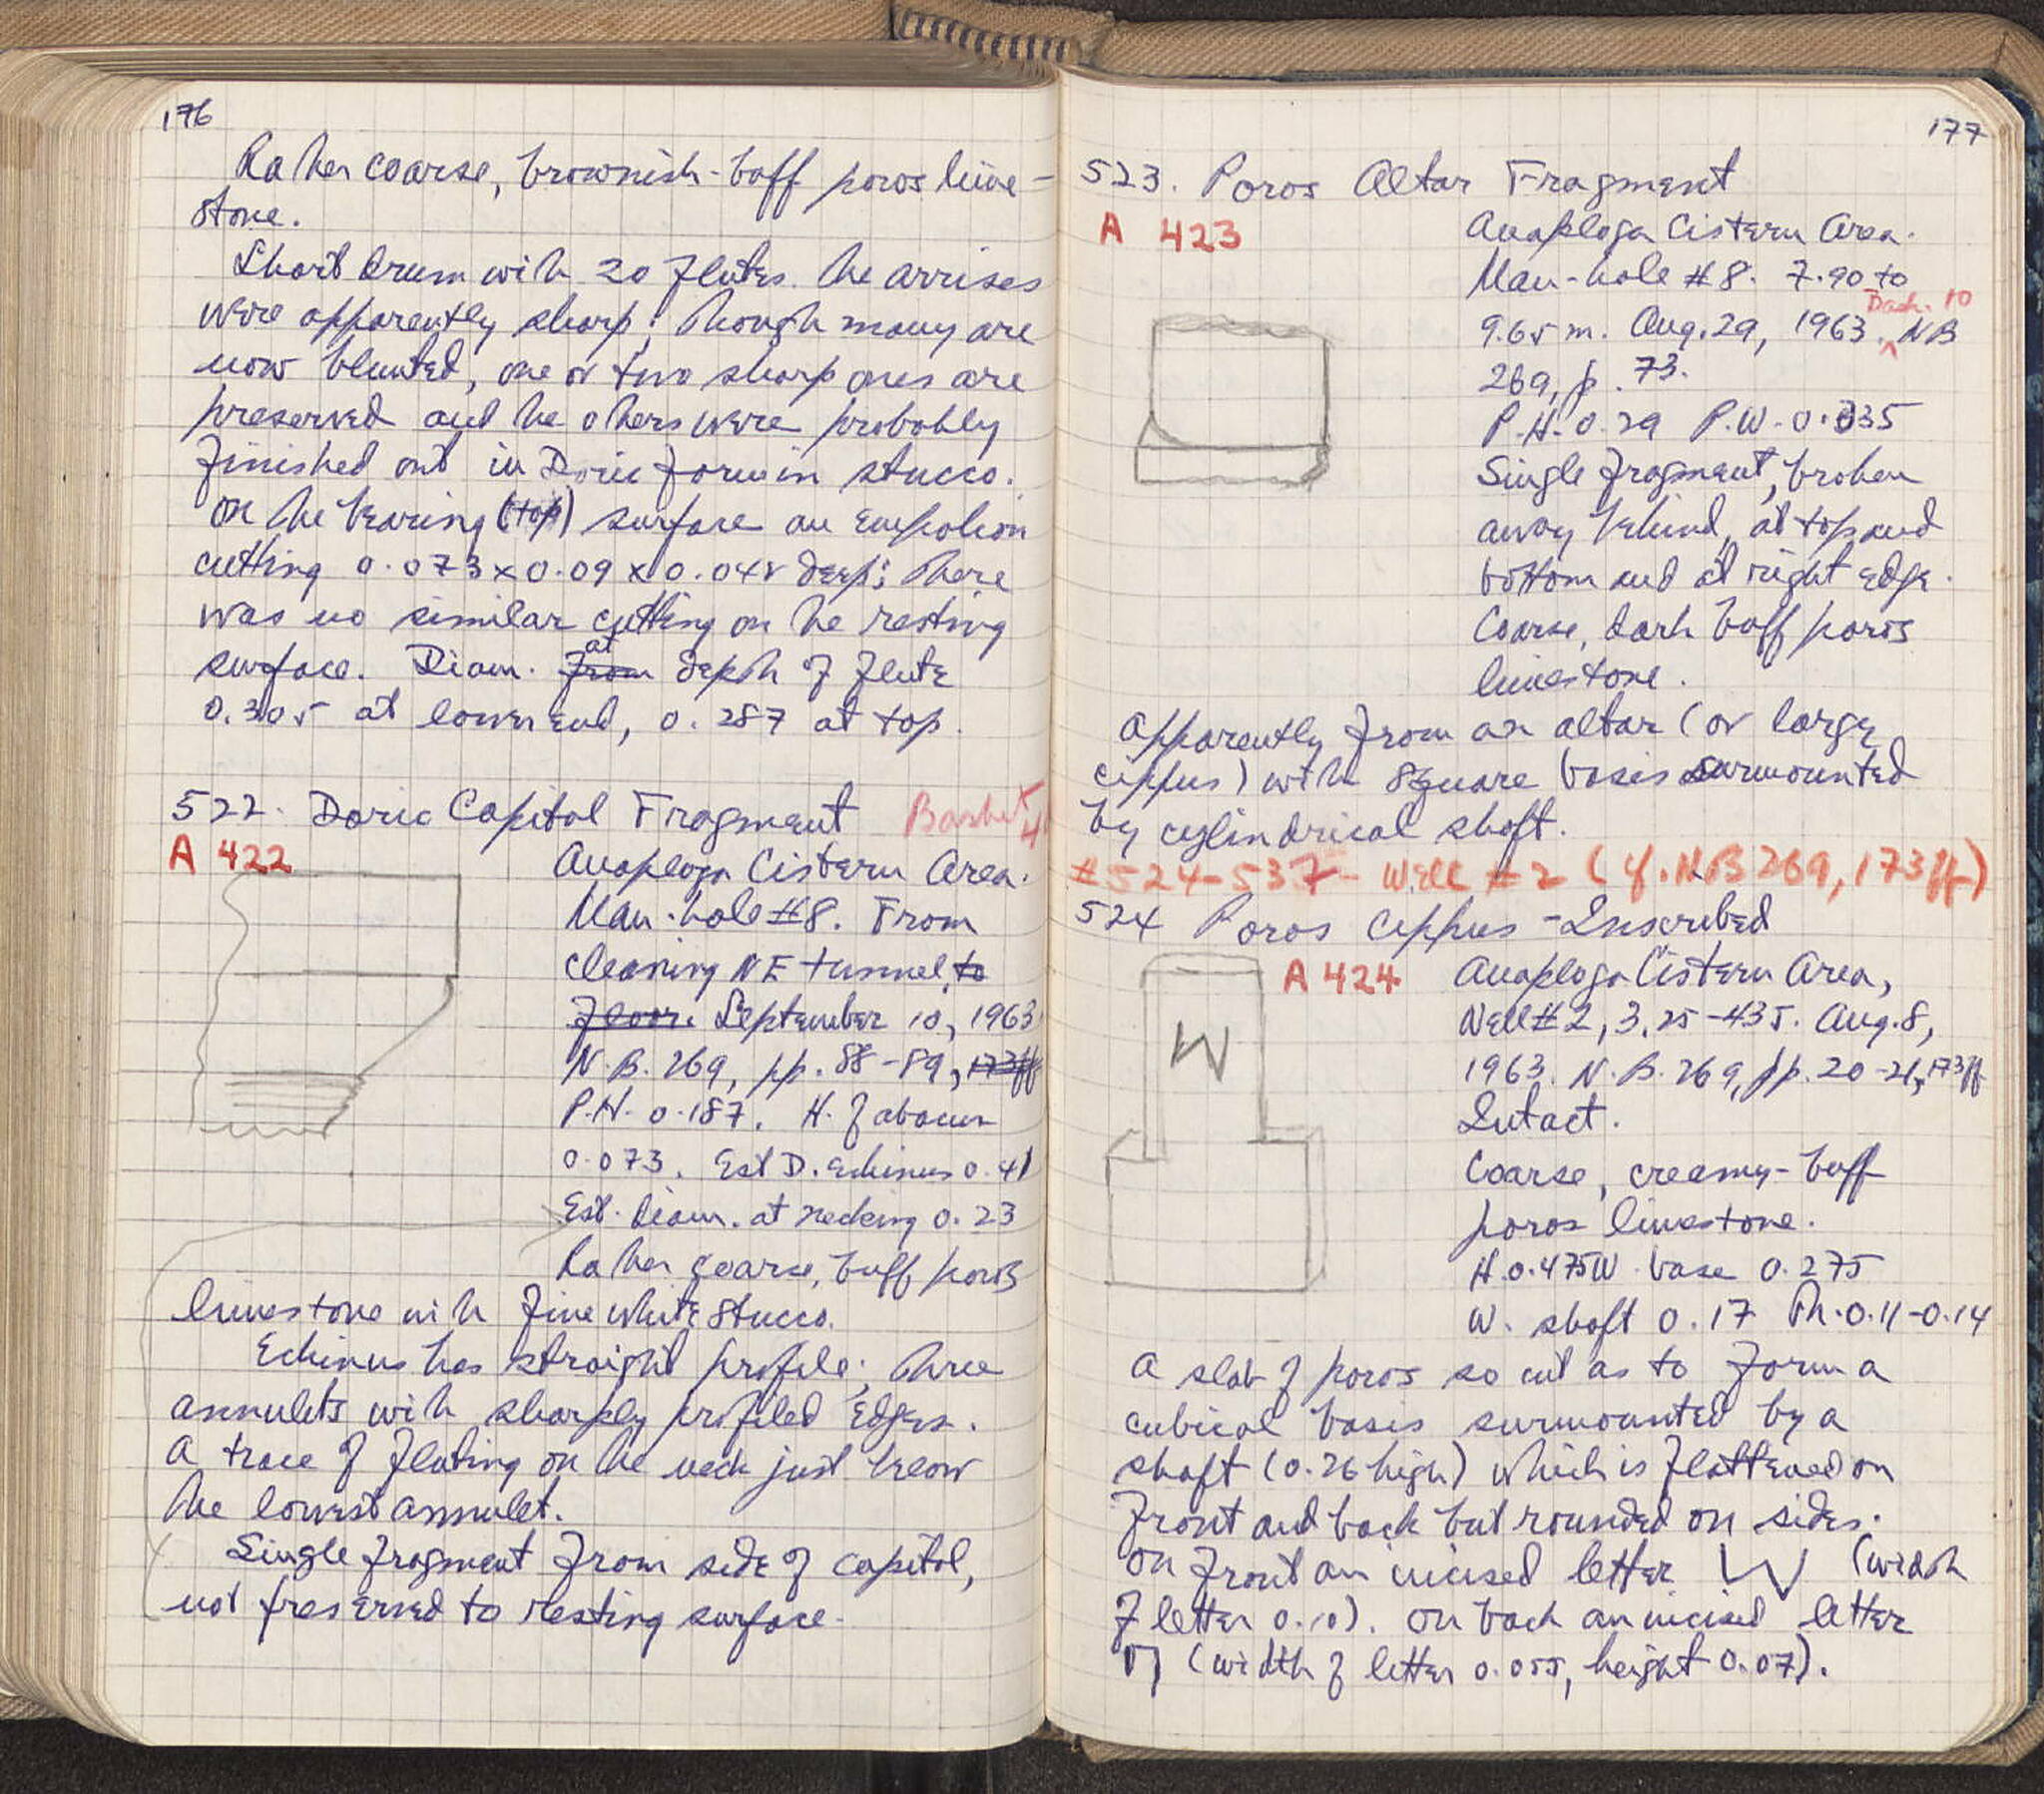 176
Rather coarse, brownish-buff poros lime-
stone.
Short drum with 20 flutes. The arrises
were apparently sharp; though many are
now blunted, one or two sharp ones are
preserved and the others were probably
finished out in Doric form in stucco.
On the bearing (top) surface an empolion
cutting 0.073 x 0.09 x 0.048 deep; there
was no similar cutting on the resting
surface. Diam. from at depth of flute
0.305 at lower end, 0.287 at top.
522. Doric Capital Fragment Basket 41
A 422
Anaploga Cistern Area.
Man-hole #8. From
cleaning NE tunnel, to
floor. September 10, 1963
N.B. 269, pp. 88-89, 173ff
P.H. 0.187. H. of abacus
0.073. Est D. Echinus 0.41
Est. Diam. at necking 0.23
Rather coarse, buff poros
limestone with fine white stucco.
Echinus has straight profile; three
annulets with sharply profiled edges.
A trace of fluting on the neck just below
the lowest annulet.
Single fragment from side of capital,
not preserved to resting surface.
177
523. Poros Altar Fragment
A 423
Anaploga Cistern Area.
Man-hole #8. 7.90 to
9.65 m. Aug. 29, 1963. Dash. 10 NB
269, p. 73.
P.H. 0.29 P.W. 0.335
Single fragment, broken
away behind, at top and
bottom and at right edge.
Coarse, dark buff poros
limestone.
Apparently from an altar (or large
cippus) with square basis surmounted
by cylindrical shaft.
#524-537 - Well #2 (cf. NB 269, 173ff)
524 Poros Cippus - Inscribed
A 424
Anaploga Cistern Area,
Well #2, 3.25-4.35. Aug. 8,
1963. N.B. 269, pp. 20-21, 173ff
Intact.
Coarse, creamy-buff
poros limestone.
H. 0.475 W. base 0.275
W. shaft 0.17 Th. 0.11-0.14
A slab of poros so cut as to form a
cubical basis surmounted by a
shaft (0.26 high) which is flattened on
front and back but rounded on sides.
On front an incised letter W (width
of letter 0.10). On back an incised letter
(width of letter 0.055, height 0.07).
W